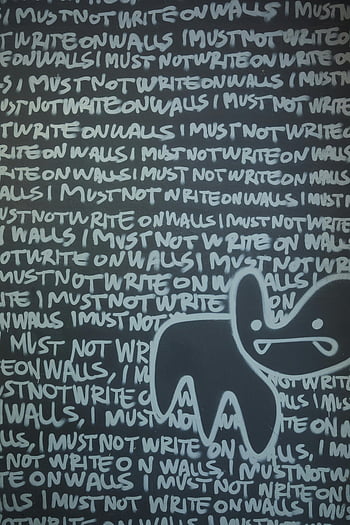 I MUST NOT WRITE ON WALLS I MUST NOT
T WRITE ON WALLS I MUST NOT WRITE
EON WALLS I MUST NOT WRITE ON WALLS
S I MUST NOT WRITE ON WALLS I MUST
UST NOT WRITE ON WALLS I MUST NOT WRITE
T WRITE ON WALLS I MUST NOT WRITE
RITE ON WALLS I MUST NOT WRITE ON WALLS
ALLS I MUST NOT WRITE ON WALLS I MUST
UST NOT WRITE ON WALLS I MUST NOT WRITE
WALLS I MUST NOT WRITE ON WALL
OT WRITE ON WALLS I MUST NOT WRITE
MUST NOT WRITE ON WALLS
ITE I MUST NOT WRITE ON
N WALLS I MUST NOT WRITE
MUST NOT WR
E ON WALLS, I MUST NOT WRITE ON WALLS
WALLS, I MUST NOT ITE ON
LLS, I MUST NOT WRITE ON WALLS, I MUST
NOT WRITE ON WALLS, I MUST NOT
TE ON WALLS I MUST NOT WRITE
S I MUST NOT WRITE ON WALLS, I MUST